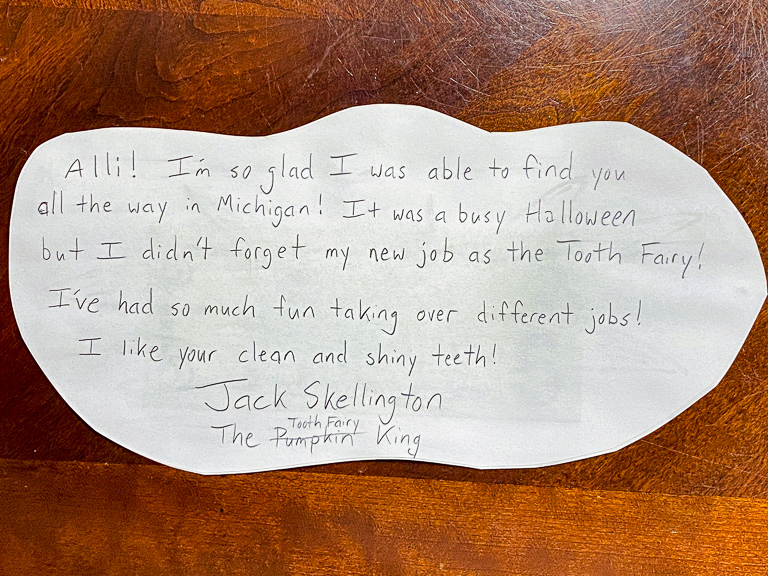 Alli! I'm so glad I was able to find you
all the way in Michigan! It was a busy Halloween
but I didn't forget my new job as the Tooth Fairy!
I've had so much fun taking over different jobs!
I like your clean and shiny teeth!
Jack Skellington
Tooth Fairy
The Pumpkin King